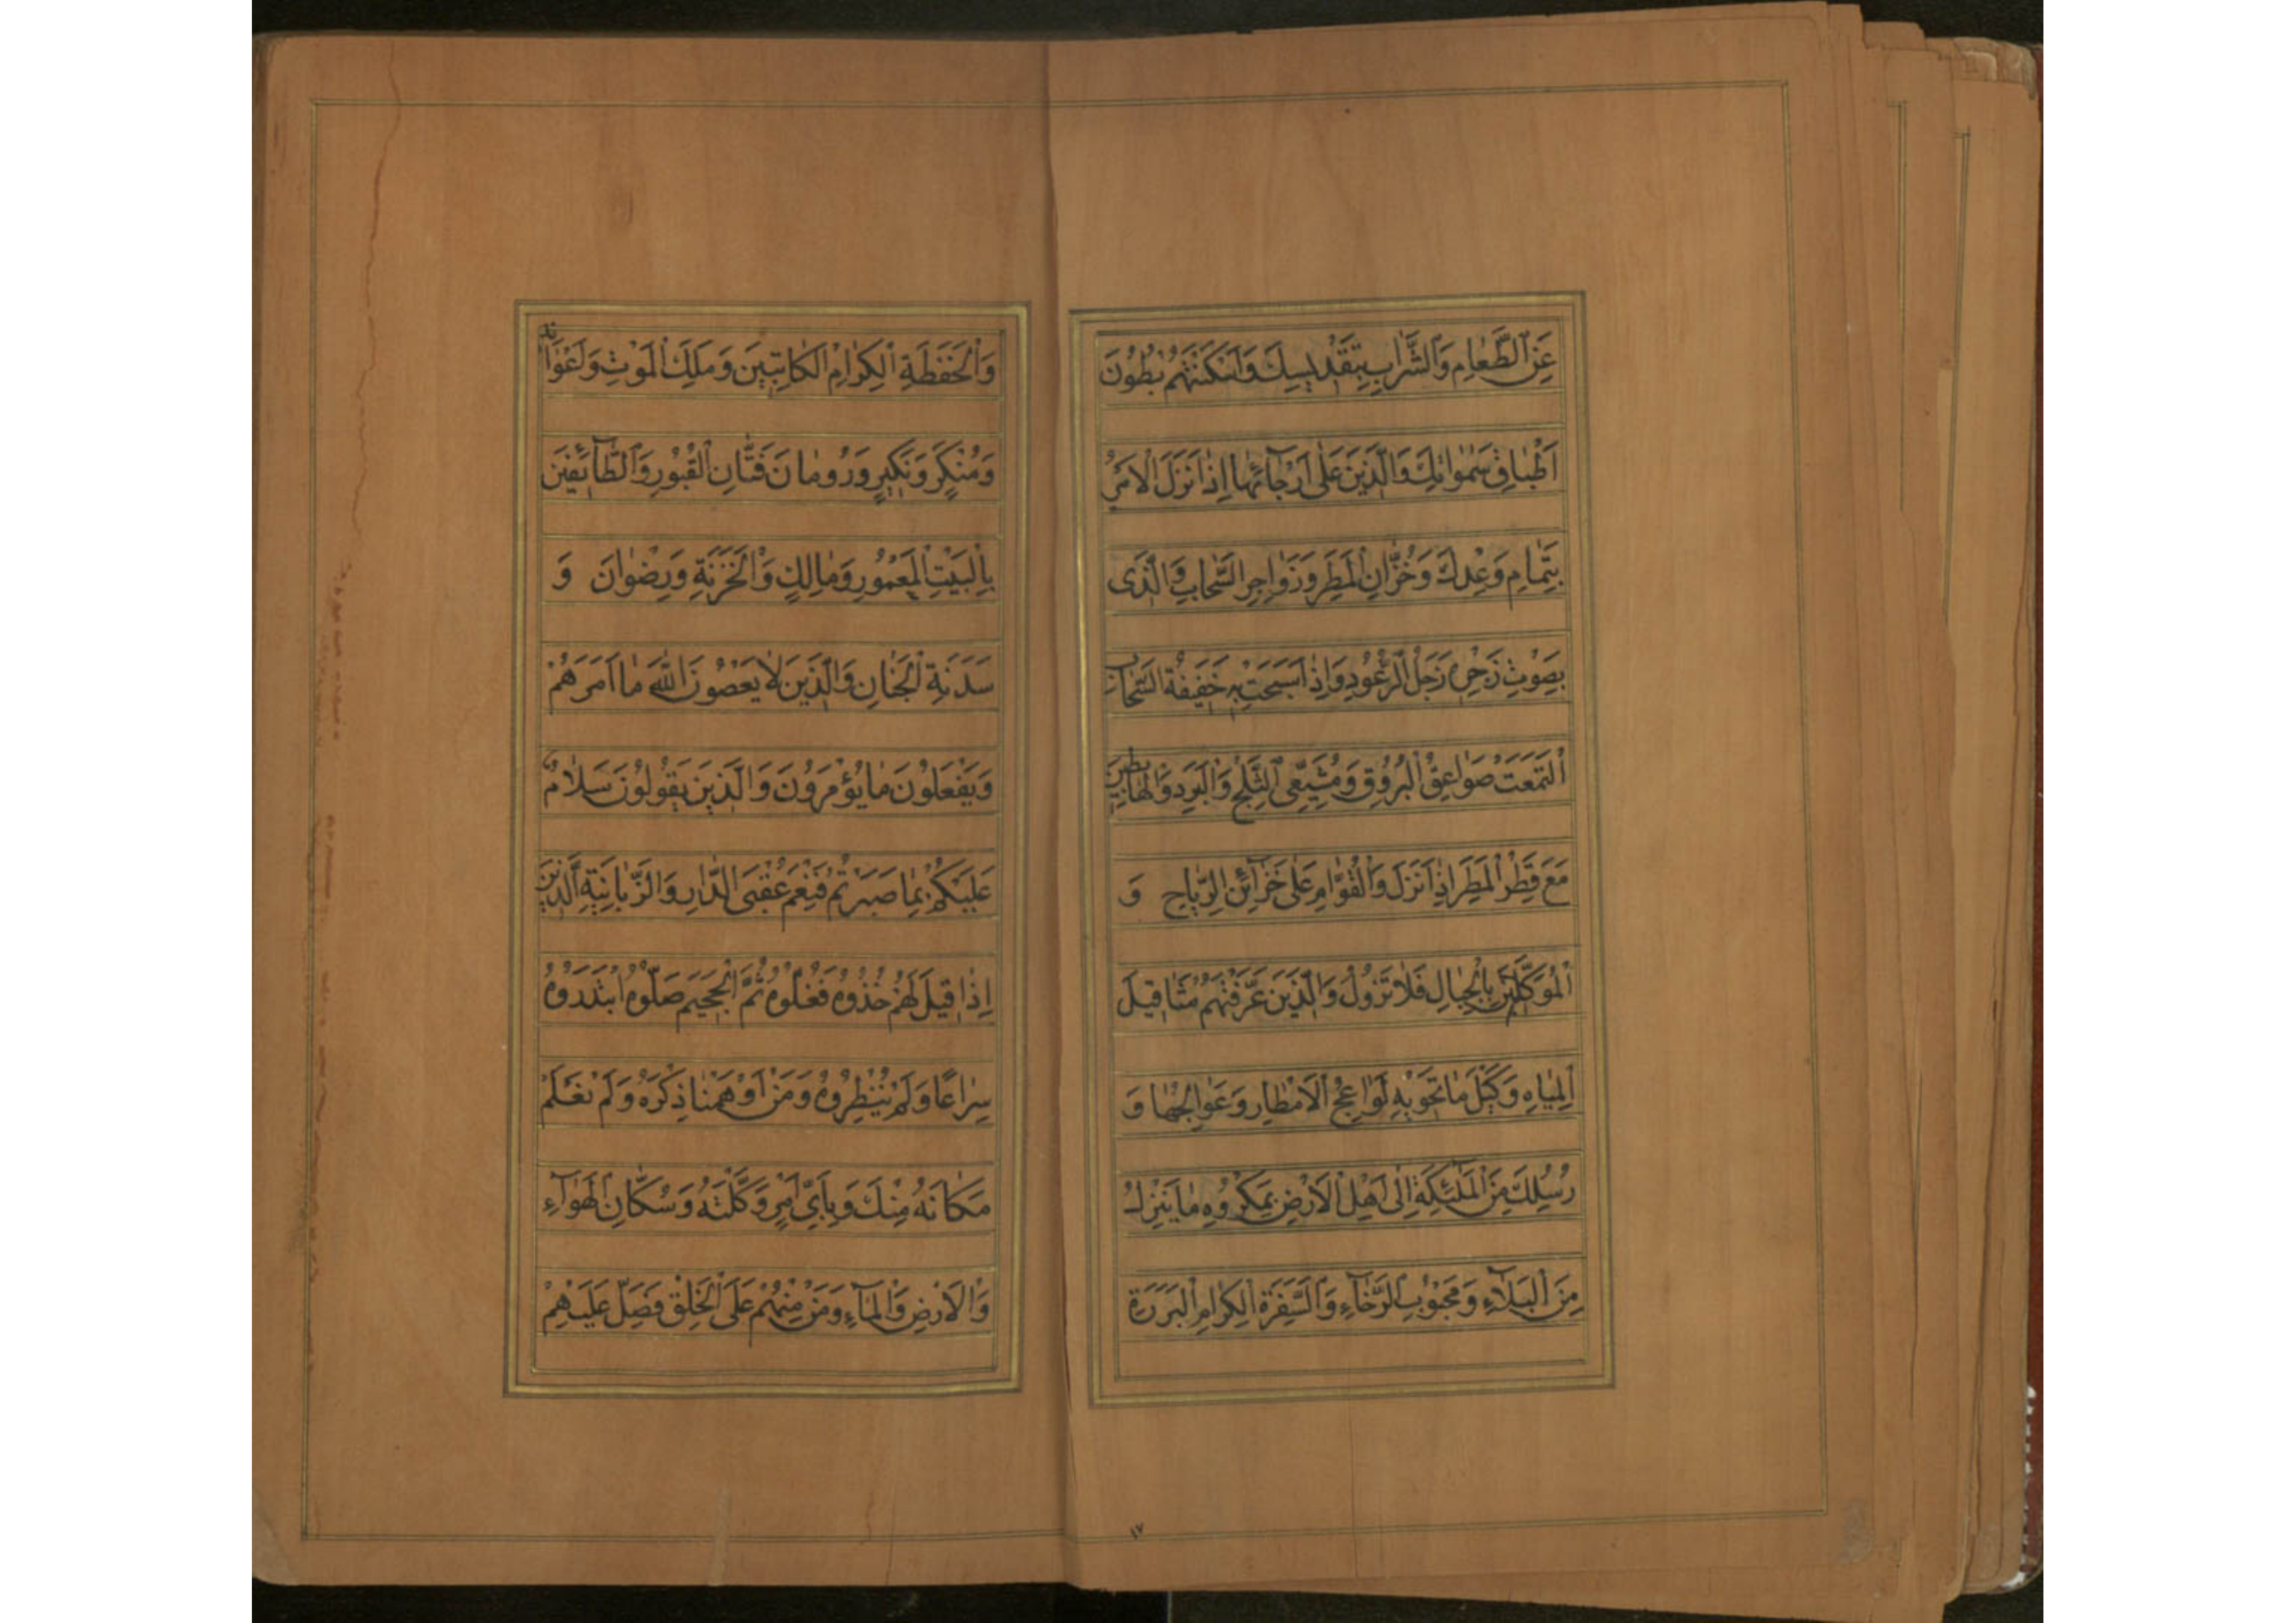 عَنِ الطَّعٰامِ وَالشَّرٰابِ بِتَقْدِيسِكَ وَاَسْكَنْتَهُمْ بُطُونَ
اَطْبٰاقِ سَمٰوٰاتِكَ وَالَّذِينَ عَلٰى اَرْجٰآئِهٰا اِذٰا نَزَلَ الْاَمْرُ
بِتَمٰامِ وَعْدِكَ وَخُزّٰانِ الْمَطَرِ وَزَوٰاجِرِ السَّحٰابِ وَالَّذِى
بِصَوْتِ زَجْرِهِ زَجَلُ الرُّعُودِ وَاِذٰا سَبَحَتْ بِهِ خَفِيفَةُ السَّحٰابِ
الْتَمَعَتْ صَوٰاعِقُ الْبُرُوقِ وَمُشَيِّعِى الثَّلْجِ وَالْبَرَدِ وَالْهٰابِطِينَ
مَعَ قَطْرِ الْمَطَرِ اِذٰا نَزَلَ وَالْقُوّٰامِ عَلٰى خَزٰآئِنِ الرِّيٰاحِ وَ
الْمُوَكَّلِينَ بِالْجِبٰالِ فَلٰا تَزُولُ وَالَّذِينَ عَرَّفْتَهُمْ مَثٰاقِيلَ
الْمِيٰاهِ وَكَيْلَ مٰا تَحْوِيهِ لَوٰاعِجُ الْاَمْطٰارِ وَعَوٰالِجُهٰا وَ
رُسُلِكَ مِنَ الْمَلٰئِكَةِ اِلٰى اَهْلِ الْاَرْضِ بِمَكْرُوهِ مٰا يَنْزِلُ
مِنَ الْبَلٰآءِ وَمَحْبُوبِ الرَّخٰآءِ وَالسَّفَرَةِ الْكِرٰامِ الْبَرَرَةِ
١٧
وَالْحَفَظَةِ الْكِرٰامِ الْكٰاتِبِينَ وَمَلَكِ الْمَوْتِ وَاَعْوٰانِهِ
وَمُنْكَرٍ وَنَكِيرٍ وَرُومٰانَ فَتّٰانِ الْقُبُورِ وَالطّٰآئِفِينَ
بِالْبَيْتِ الْمَعْمُورِ وَمٰالِكٍ وَالْخَزَنَةِ وَرِضْوٰانَ وَ
سَدَنَةِ الْجِنٰانِ وَالَّذِينَ لٰا يَعْصُونَ اللّٰهَ مٰا اَمَرَهُمْ
وَيَفْعَلُونَ مٰا يُؤْمَرُونَ وَالَّذِينَ يَقُولُونَ سَلٰامٌ
عَلَيْكُمْ بِمٰا صَبَرْتُمْ فَنِعْمَ عُقْبَى الدّٰارِ وَالزَّبٰانِيَةِ الَّذِينَ
اِذٰا قِيلَ لَهُمْ خُذُوهُ فَغُلُّوهُ ثُمَّ الْجَحِيمَ صَلُّوهُ ابْتَدَرُوهُ
سِرٰاعًا وَلَمْ يُنْظِرُوهُ وَمَنْ اَوْهَمْنٰا ذِكْرَهُ وَلَمْ نَعْلَمْ
مَكٰانَهُ مِنْكَ وَبِاَىِّ اَمْرٍ وَكَّلْتَهُ وَسُكّٰانِ الْهَوٰآءِ
وَالْاَرْضِ وَالْمٰآءِ وَمَنْ مِنْهُمْ عَلَى الْخَلْقِ فَصَلِّ عَلَيْهِمْ